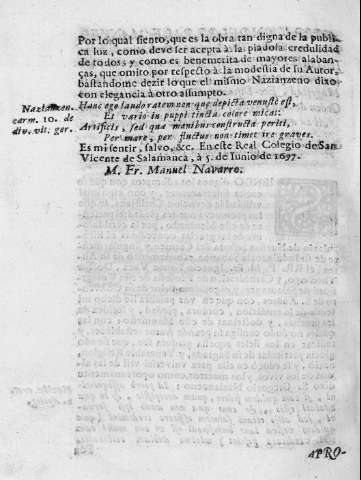 Por lo qual siento, que es la obra tan digna de la publi-
ca luz, como deve ser acepta à la piadosa credulidad
de todos; y como es benemerita de mayores alaban-
ças, que omito por respecto à la modestia de su Autor,
bastandome dezir lo que el mismo Nazianzeno dixo
con elegancia à otro assumpto.
Nazianzen.
carm. 10. de
div. vit. ger.
Hanc ego laudo ratem non que depicta venustè est,
Et vario in puppi tincta colore micat:
Artificis, sed quæ manibus constructa periti,
Per mare, per fluctus non timet ire graves.
Es mi sentir, salvo, &c. En este Real Colegio de San
Vicente de Salamanca, à 5. de Iunio de 1697.
M. Fr. Manuel Navarro.
APRO-